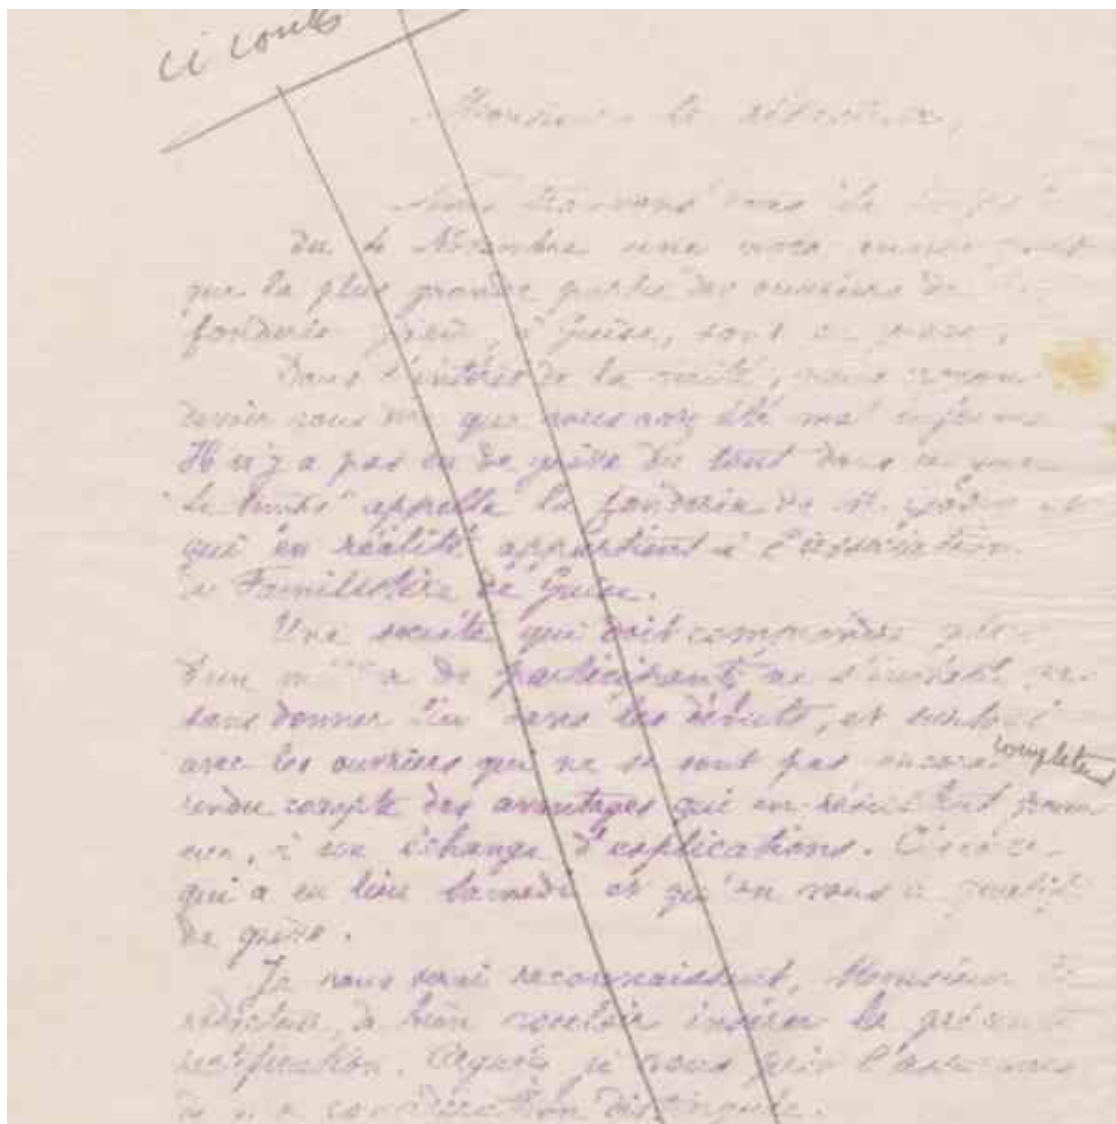 Monsieur le rédacteur,
Nous trouvons dans le
du 4 Novembre une note
que la plus grande partie des ouvriers de
fonderie à Guise, sont en
Dans l'intérêt de la vérité, nous
devoir vous dire que vous avez été mal informé
Il n'y a pas eu de grève du tout dans ce que
le Temps appelle la fonderie de M. Godin et
qui en réalité appartient à l'association
du Familistère de Guise.
Une société qui doit comprendre plus
d'un de participants ne s'
sans donner lieu dans les débuts, et surtout
avec les ouvriers qui ne se sont pas encore complètement
rendu compte des avantages qui en résultent pour
eux, à un échange d'explications. C'est ce
qui a eu lieu Samedi et qu'on vous a qualifié
de grève.
Je vous serai reconnaissant, Monsieur le
rédacteur, de bien vouloir insérer la présente
rectification. Agréez je vous prie l'assurance
de ma considération distinguée.